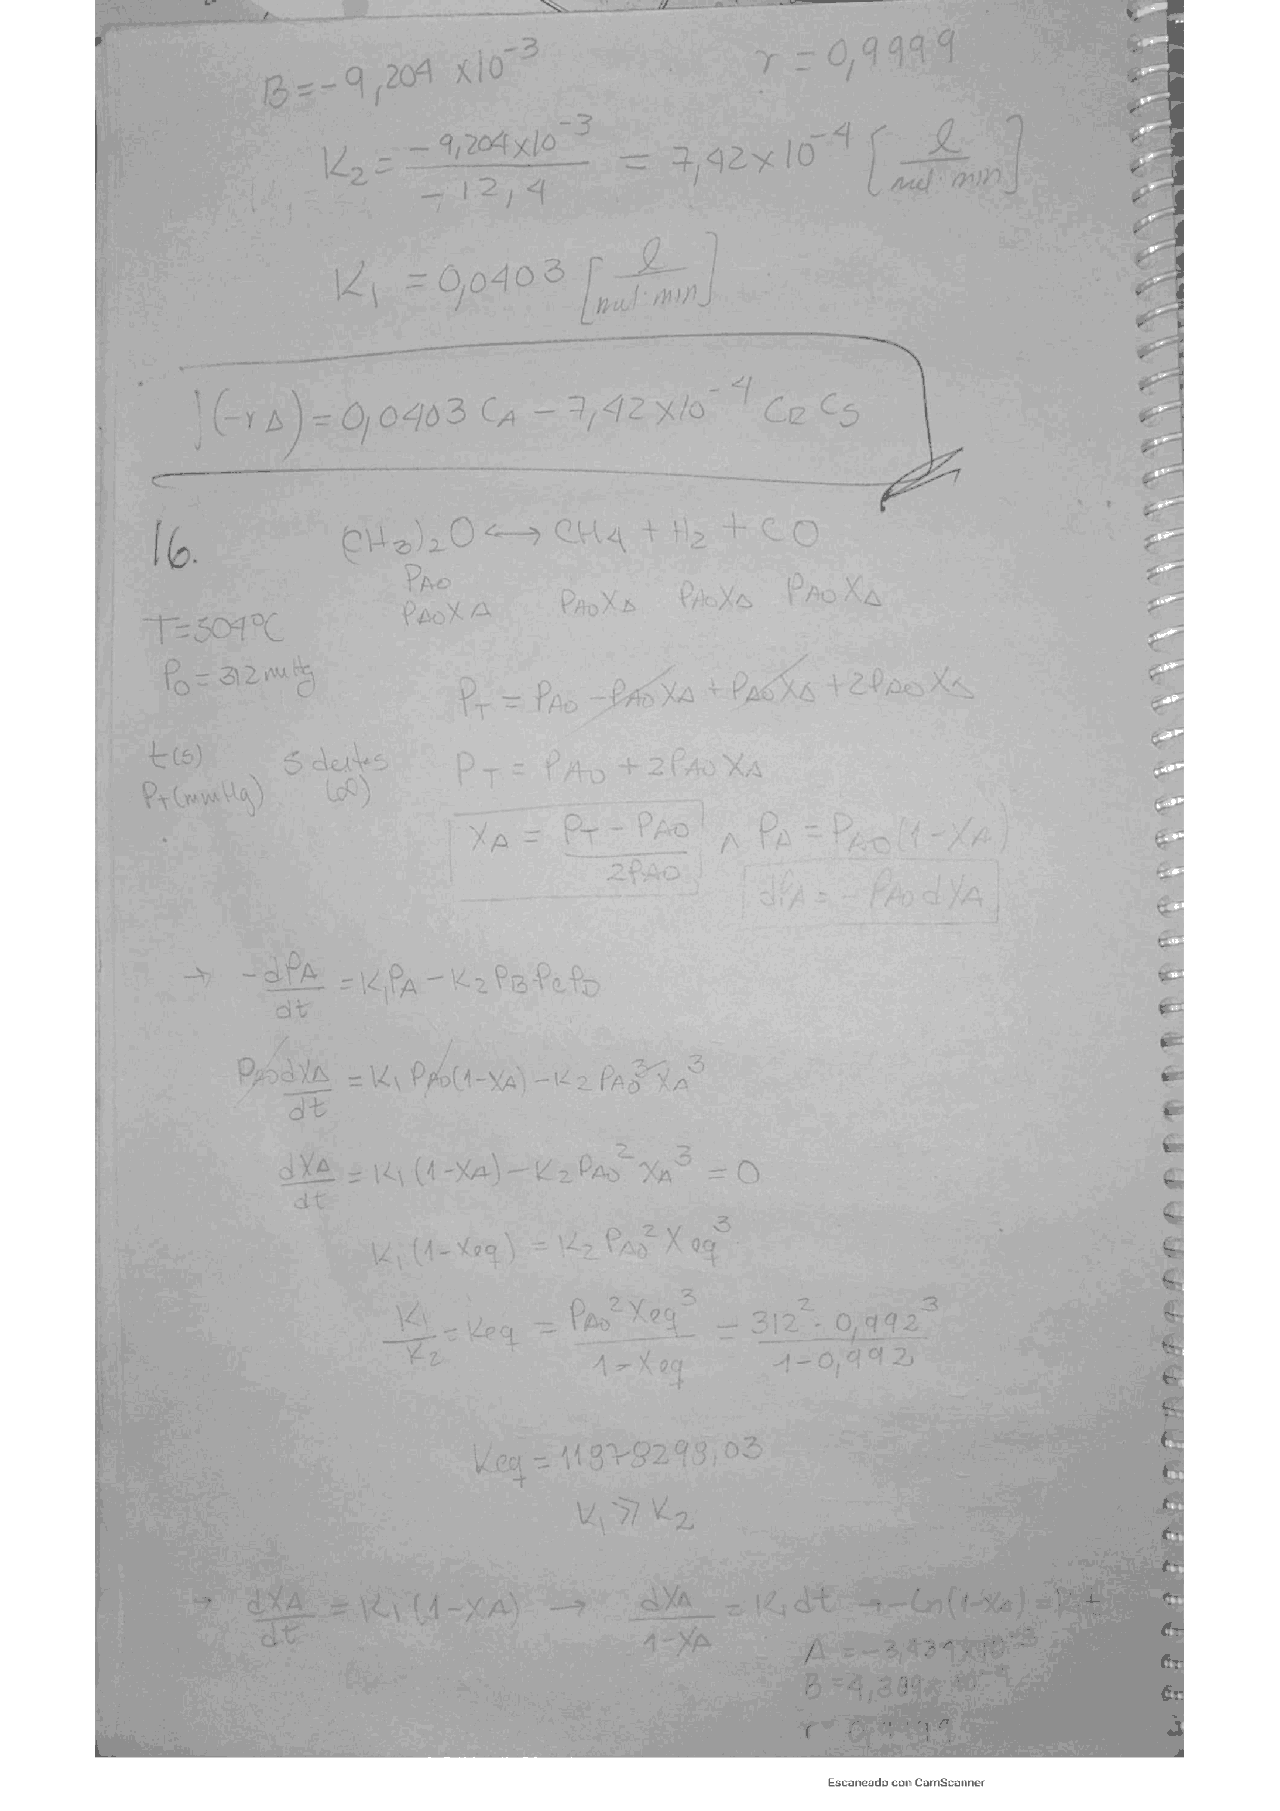 B = -9,204 x10^-3    r = 0,9999
K2 = -9,204x10^-3 / -12,4 = 7,42 x 10^-4 [l / mol·min]
K1 = 0,0403 [l / mol·min]
(-rA) = 0,0403 CA - 7,42 x10^-4 CR CS
16.    (CH3)2O <-> CH4 + H2 + CO
PAO
PAOXA    PAOXA    PAOXA    PAOXA
T=504°C
P0 = 312 mmHg
PT = PAO - PAOXA + PAOXA + 2PAOXA
t(s)    5 dentes    PT = PAO + 2PAO XA
PT(mmHg)    (∞)
XA = PT - PAO / 2PAO ∧ PA = PAO(1-XA)
dPA = - PAO dXA
→ -dPA/dt = K1PA - K2 PB·PC PD
PAO dXA/dt = K1 PAO(1-XA) - K2 PAO^3 XA^3
dXA/dt = K1 (1-XA) - K2 PAO^2 XA^3 = 0
K1 (1-Xeq) = K2 PAO^2 Xeq^3
K1/K2 = Keq = PAO^2 Xeq^3 / 1-Xeq = 312^2 · 0,992^3 / 1-0,992
Keq = 11878298,03
K1 ≫ K2
→ dXA/dt = K1 (1-XA) → dXA / 1-XA = K1 dt → -Ln(1-XA) = Kt
A = -3,434x10^-3
B = 4,
r = 0,
Escaneado con CamScanner